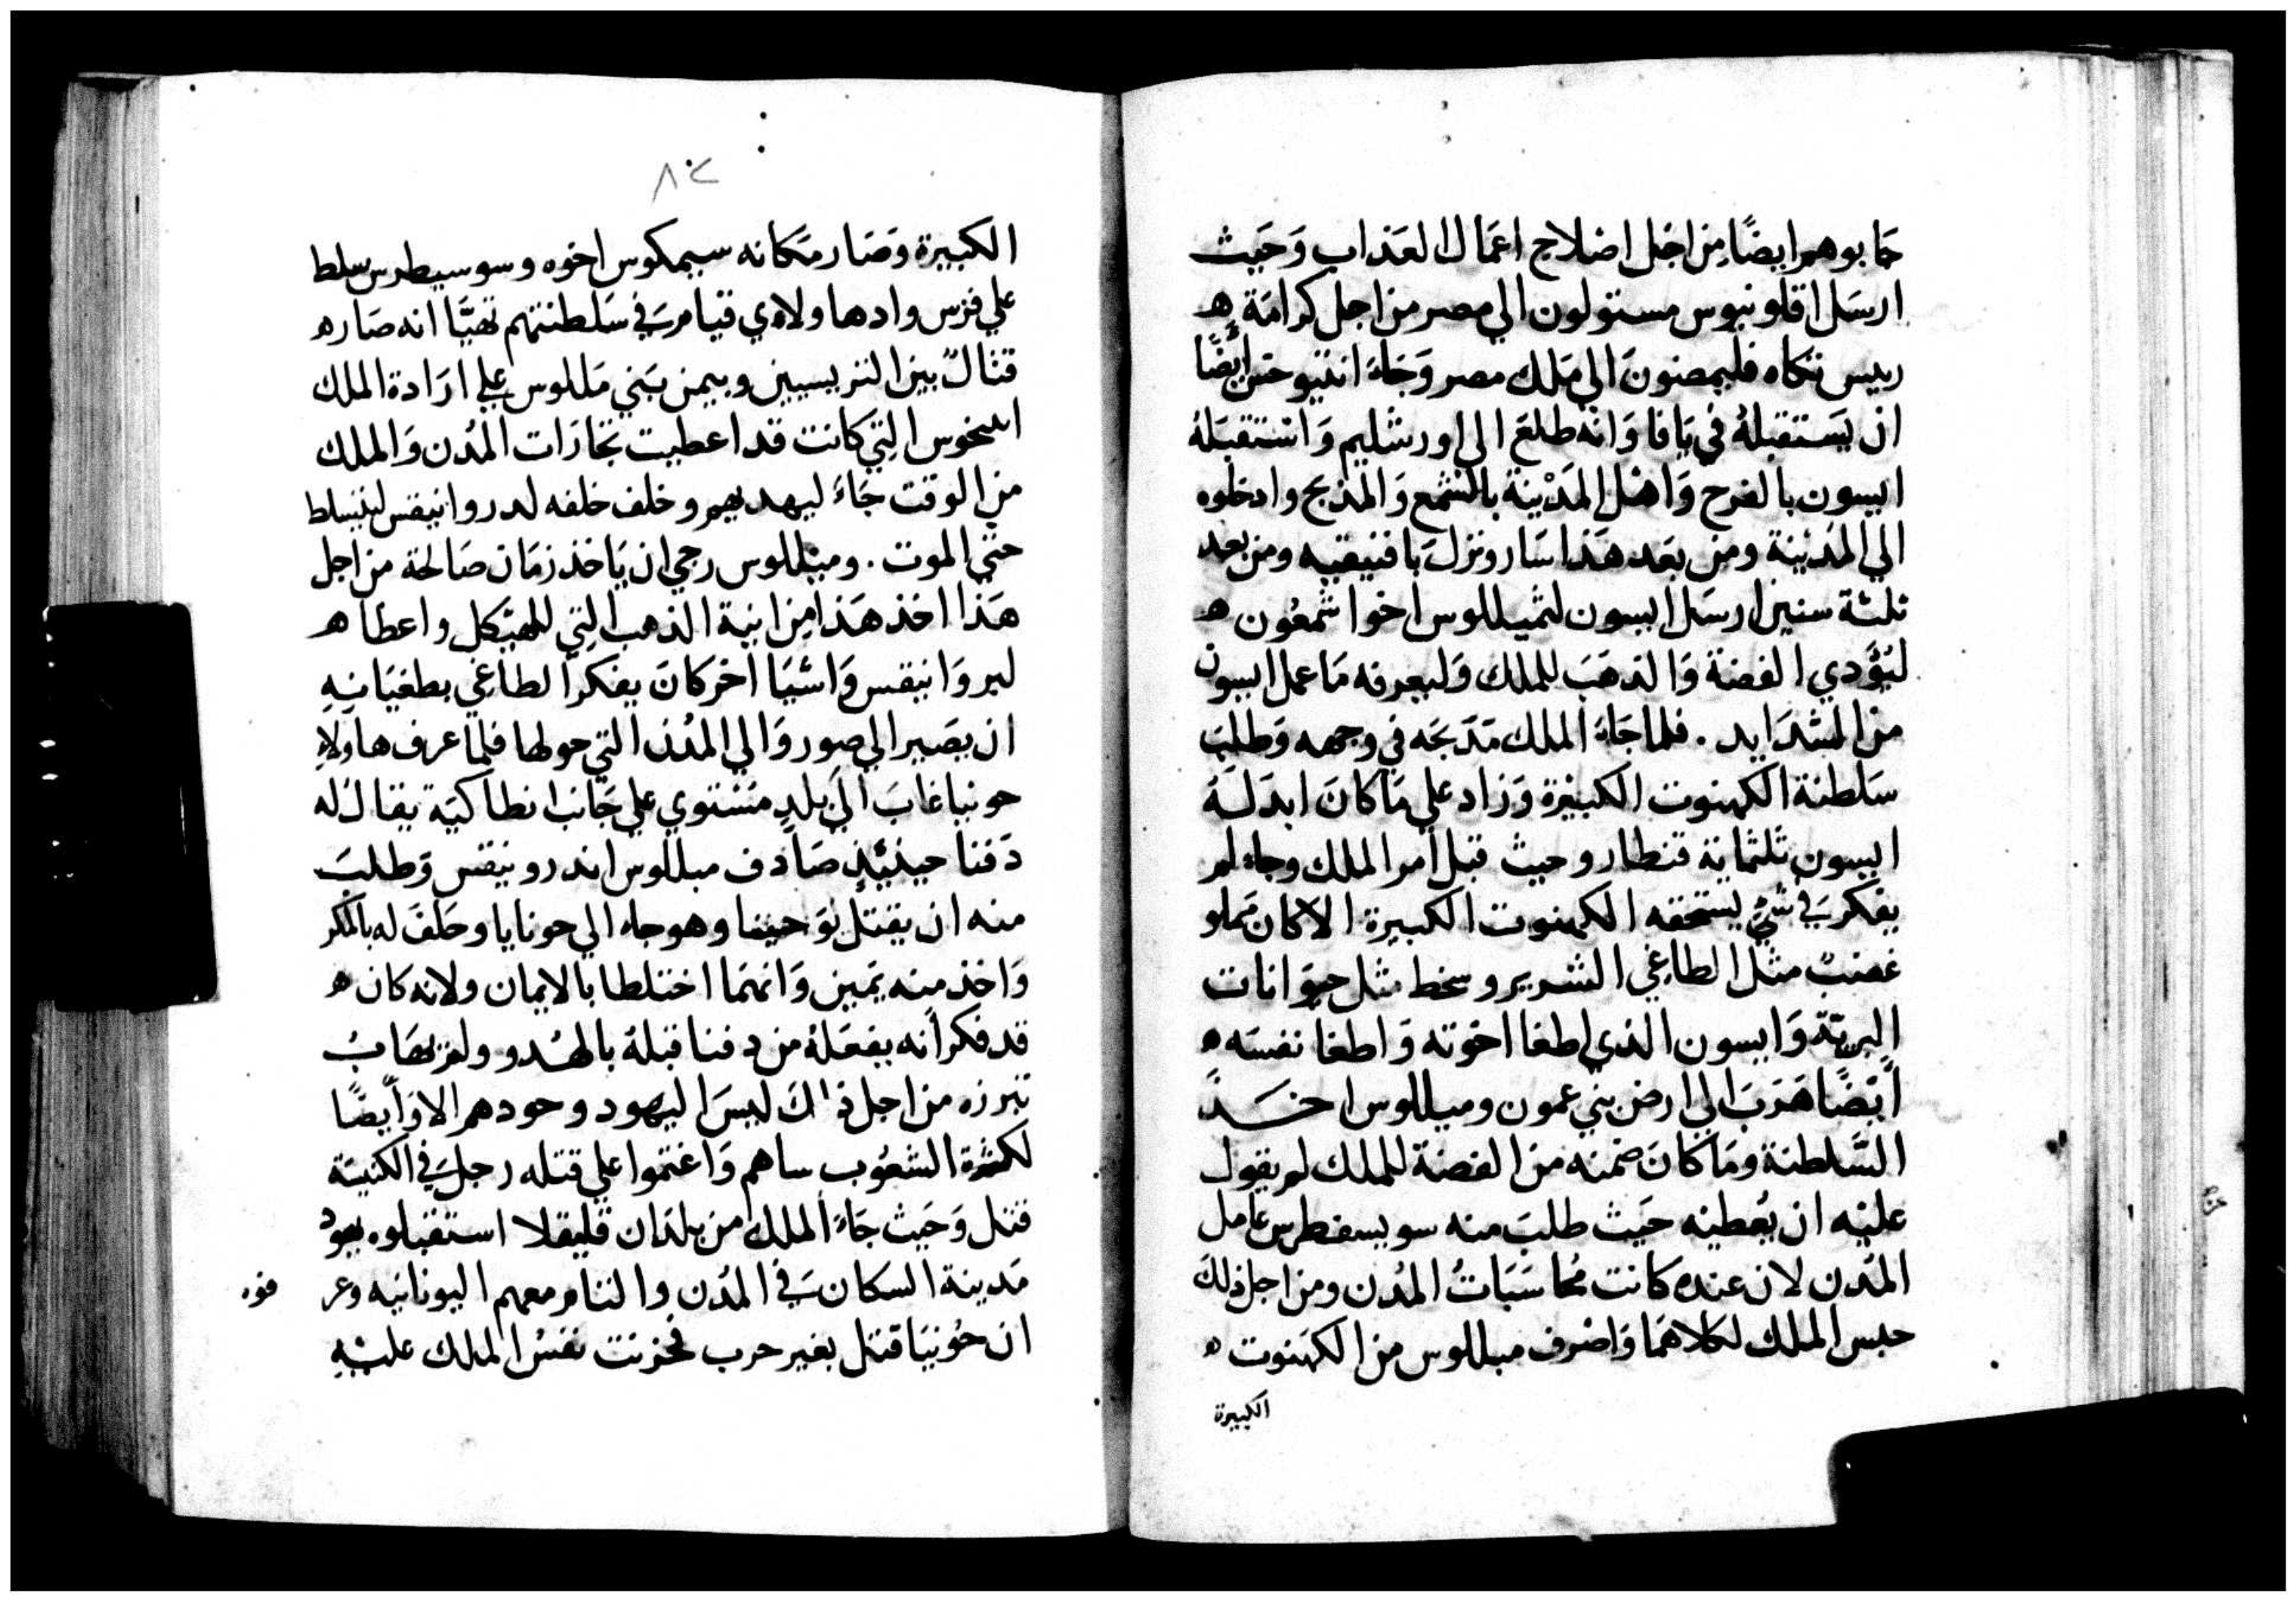 حابوهم ايضًا من اجل اصلاح اعمال العذاب وَحَيث
ارسَل اقلونيوس مستولون الي مصر من اجل كرامَة ه
رييس تكاه فليمصنونَ الي مَلك مصر وَجَاءَ انتيوخس ايضًا
ان يَستقبلهُ في يَافا وَانه طلعَ الي اورشليم وَاستقبَلهُ
ايسون بالفرح وَاهْل المَدْينة بالشمع وَالمذبح وادخلوه
الي المَدْينة ومن بعَد هَذا سَار ونزلَ بافنيقيه ومن بعد
ثلثة سنين ارسَل ايسون لثميللوس اخوا شمعُون ه
ليُؤدي الفضة وَالذهَبَ للملك وَليعرفه مَا عمل ايسون
من الشدَايد . فلما جَاءَ الملك مَدَحَه في وجهه وَطلبَ
سَلطنة الكهنوت الكبيْرة وَزاد علي مَا كانَ ابدَلهُ
ايسون ثلثماية قنطار وحيث قبل امر الملك وجاء لم
يفكر في شيٍ يستحقه الكهنوت الكبيرة الا كان مَملو
غضبٌ مثل الطاغي الشرير وسخط مثل حيوَانات
البريّة وَايسون الذي اطغا اخوته وَاطغا نفسَه ه
ايْضًا هَرَبَ الي ارض بني عمون وميللوس اخــذَ
السَّلطنة ومَا كانَ ضمنه من الفضة للملك لم يقول
عليْه ان يُعطيْه حَيث طلبَ منه سويسفطرس عَامل
المُدن لان عنده كانت مُحاسَبَاتُ المُدن ومن اجل ذلك
حبس الملك لكلاهمَا وَاصْرف ميللوس من الكهَنوت ه
الكبيرة
٨٢
الكبيْرة وَصَار مَكانه سيمكوس اخوه وسوسيطرس سلط
علي فرس وادها ولادي قيامرسَ في سَلطنتهم تهيَّا انه صَار ه
قتالٌ بين التربسيين وبيمن بَني مَللوس علي ارَادة الملك
انتخوس التِي كانت قد اعطيت تجَارَات المُدن وَالملك
من الوقت جَاءَ ليهديهم وخلف خلفه لدروانيقس ليتسلط
حتي الموت . وميللوس رجي ان يَاخذ زمَان صَالحة من اجل
هَذا اخذ هَذا مِن انية الذهب التِي للهيْكل واعطا ه
ليروَانيقس وَاشيَا اخر كانَ يفكر الطاغي بطغيَانِه
ان يصَير الي صور وَالي المُدن التي حولها فلما عرف هاولاءِ
حونيا غابَ الي بلدٍ مَستوي علي جَانب انطاكيَة يقال له
دَفنا حينيُذٍ صَادف ميللوس اندرونيقس وَطلبَ
منه ان يقتل يوَحينا وهو جاء الي حونايا وحَلفَ له بالمكر
وَاخذ منه يَمين وَانهمَا اختلطا بالايمان ولانه كان ه
قد فكر انه يفعَلهُ من دفنا قبلهُ بالهُدو ولم يهَابُ
تبرزه من اجل ذ'اكَ ليسَ اليهود وحودهم الا وَايضًا
لكثرة الشعُوب ساهم وَاغتموا علي قتله رجلَ في الكنيسَة
قتل وَحَيث جَاءَ الملك من بلدَان قليقلا استقبلوه يهود
مَدينة السكان في المُدن والتنام معهم اليونانيه وعر
فوه
ان حُونيَا قتل بغير حرب فحزنت نفسُ الملك عليْهِ